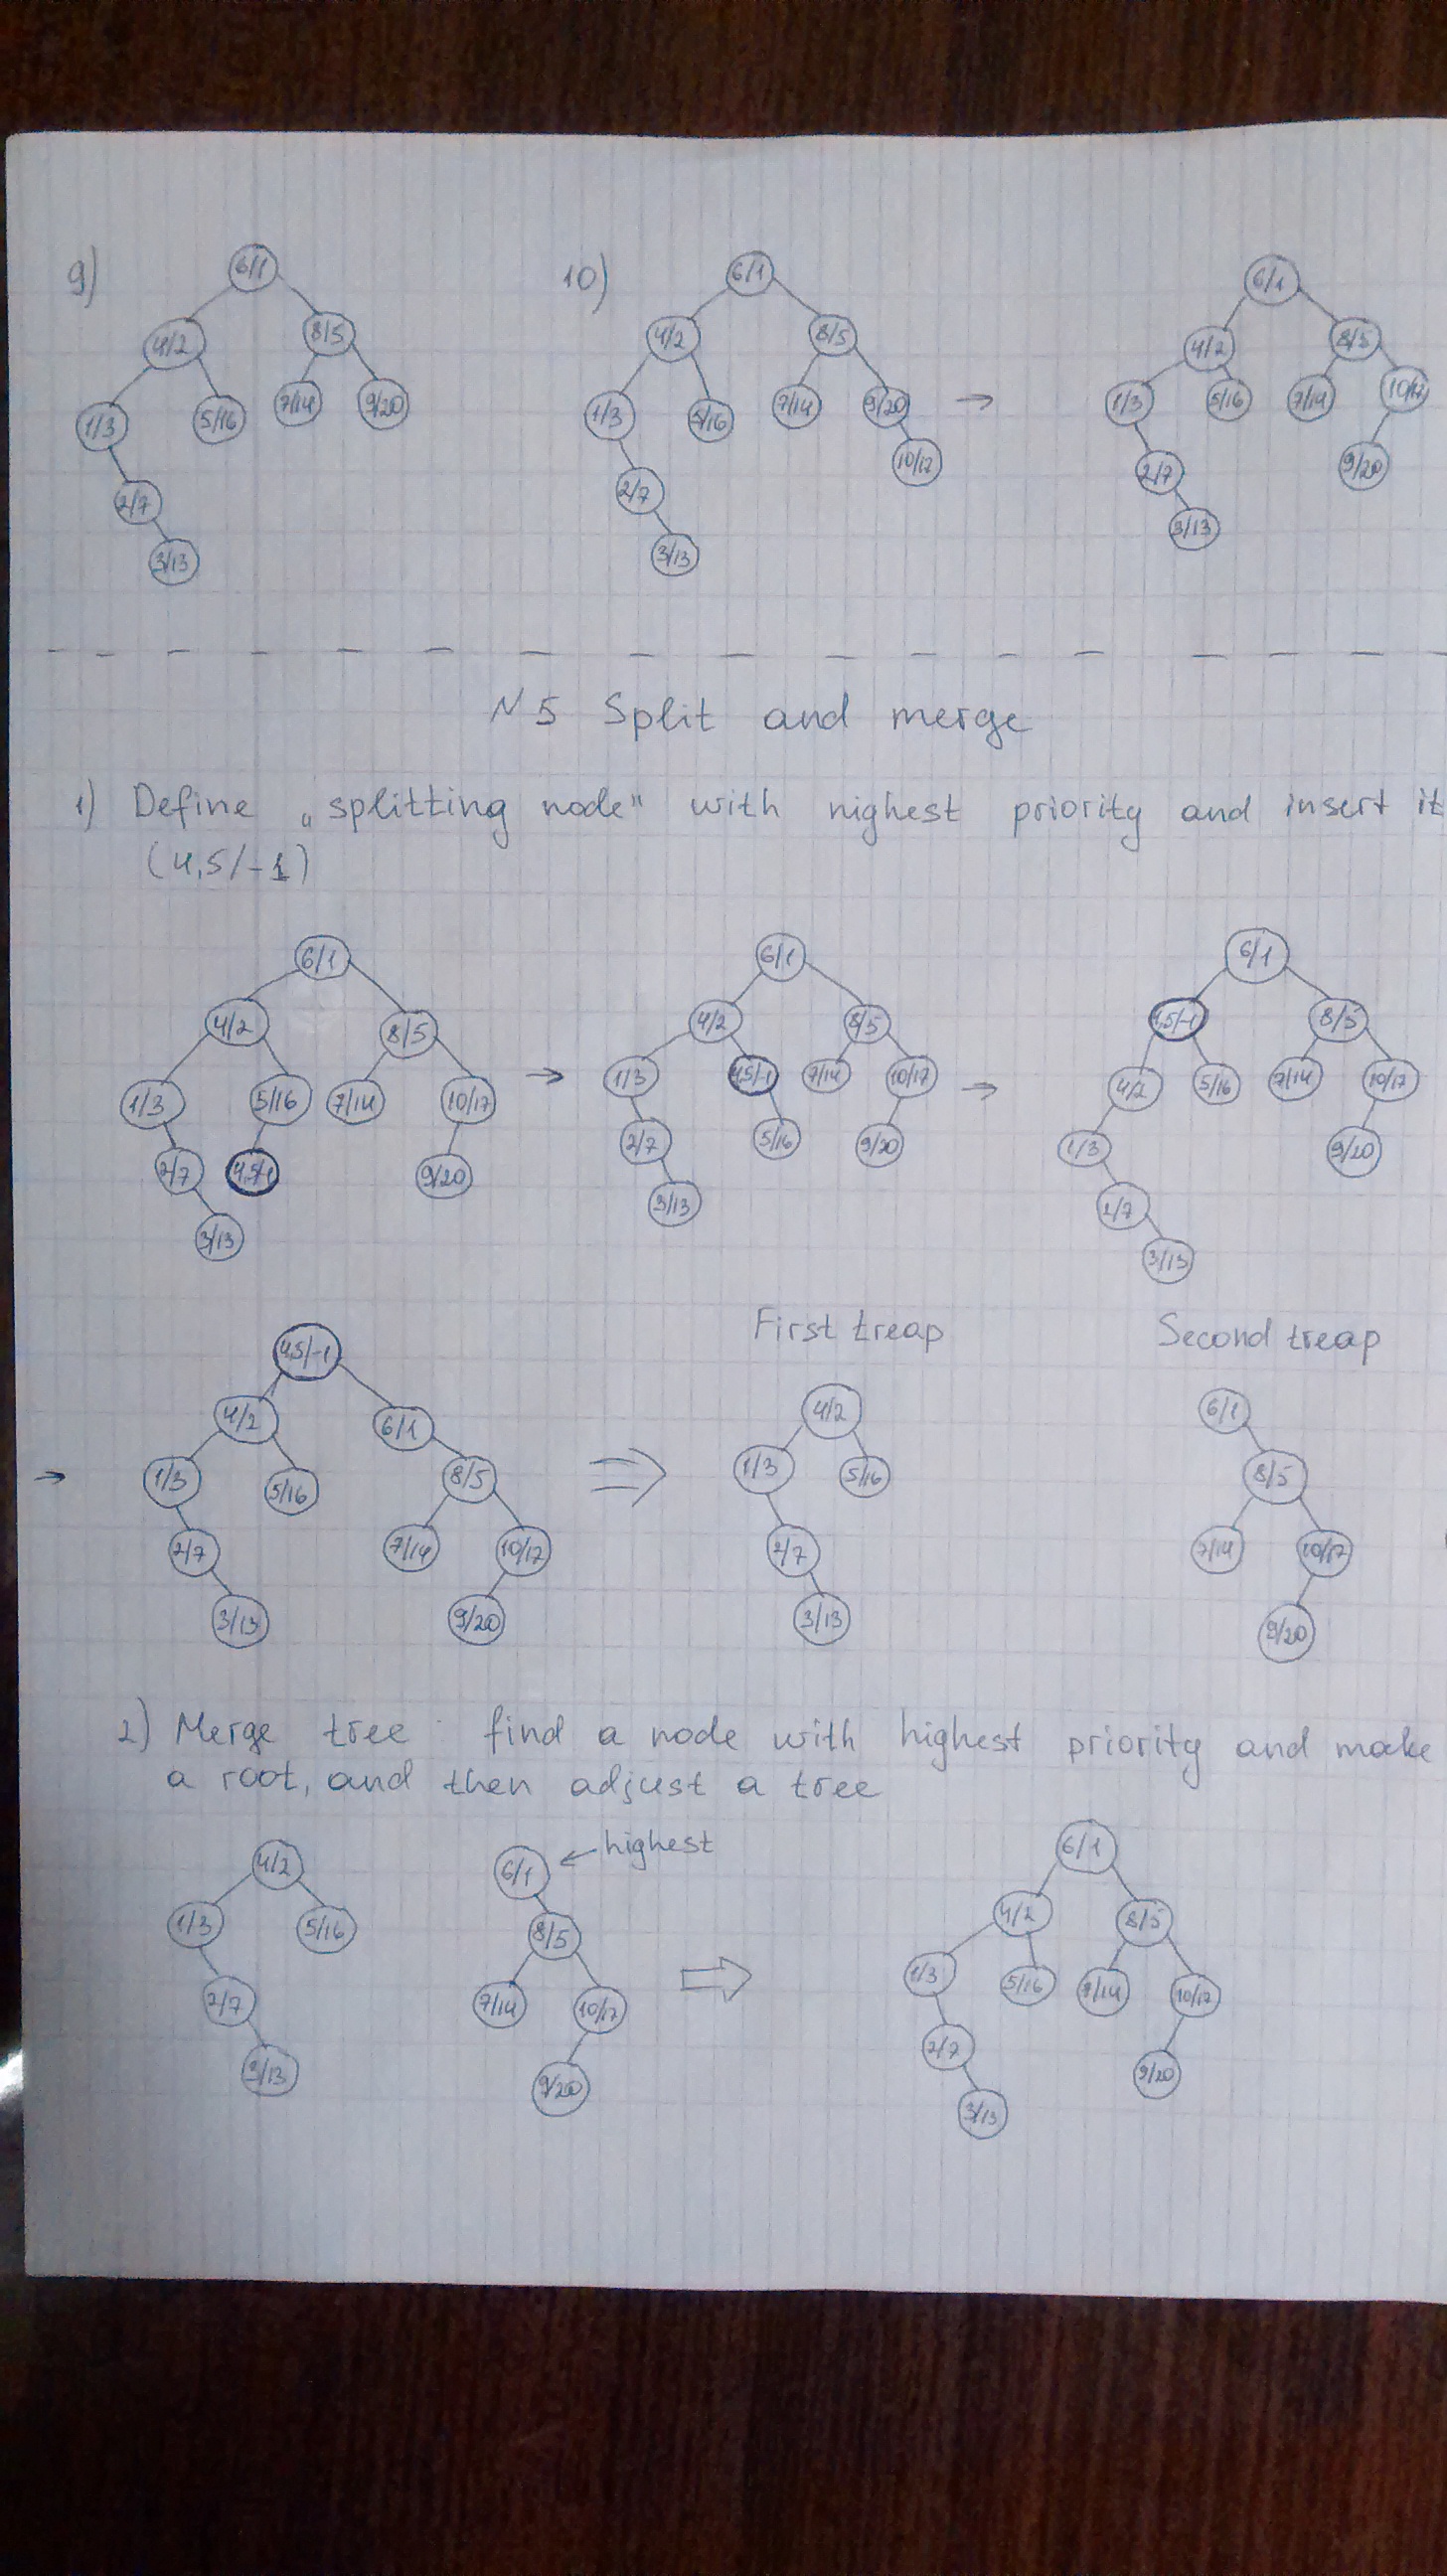 9)
6/1
4/2 8/5
1/3 5/16 7/14 9/20
2/7
3/13
10)
6/1
4/2 8/5
1/3 5/16 7/14 9/20
10/17
2/7
3/13
→
6/1
4/2 8/5
1/3 5/16 7/14 10/17
2/7 9/20
3/13
N5 Split and merge
1) Define „splitting node" with highest priority and insert it
(4,5/-1)
6/1
4/2 8/5
1/3 5/16 7/14 10/17
2/7 4,5/-1 9/20
3/13
→
6/1
4/2 8/5
1/3 4,5/-1 7/14 10/17
2/7 5/16 9/20
3/13
→
6/1
4,5/-1 8/5
4/2 5/16 7/14 10/17
1/3 9/20
2/7
3/13
→
4,5/-1
4/2 6/1
1/3 5/16 8/5
2/7 7/14 10/17
3/13 9/20
⇒
First treap
4/2
1/3 5/16
2/7
3/13
Second treap
6/1
8/5
7/14 10/17
9/20
2) Merge tree find a node with highest priority and make
a root, and then adjust a tree
4/2
1/3 5/16
2/7
3/13
6/1 ← highest
8/5
7/14 10/17
9/20
⇒
6/1
4/2 8/5
1/3 5/16 7/14 10/17
2/7 9/20
3/13